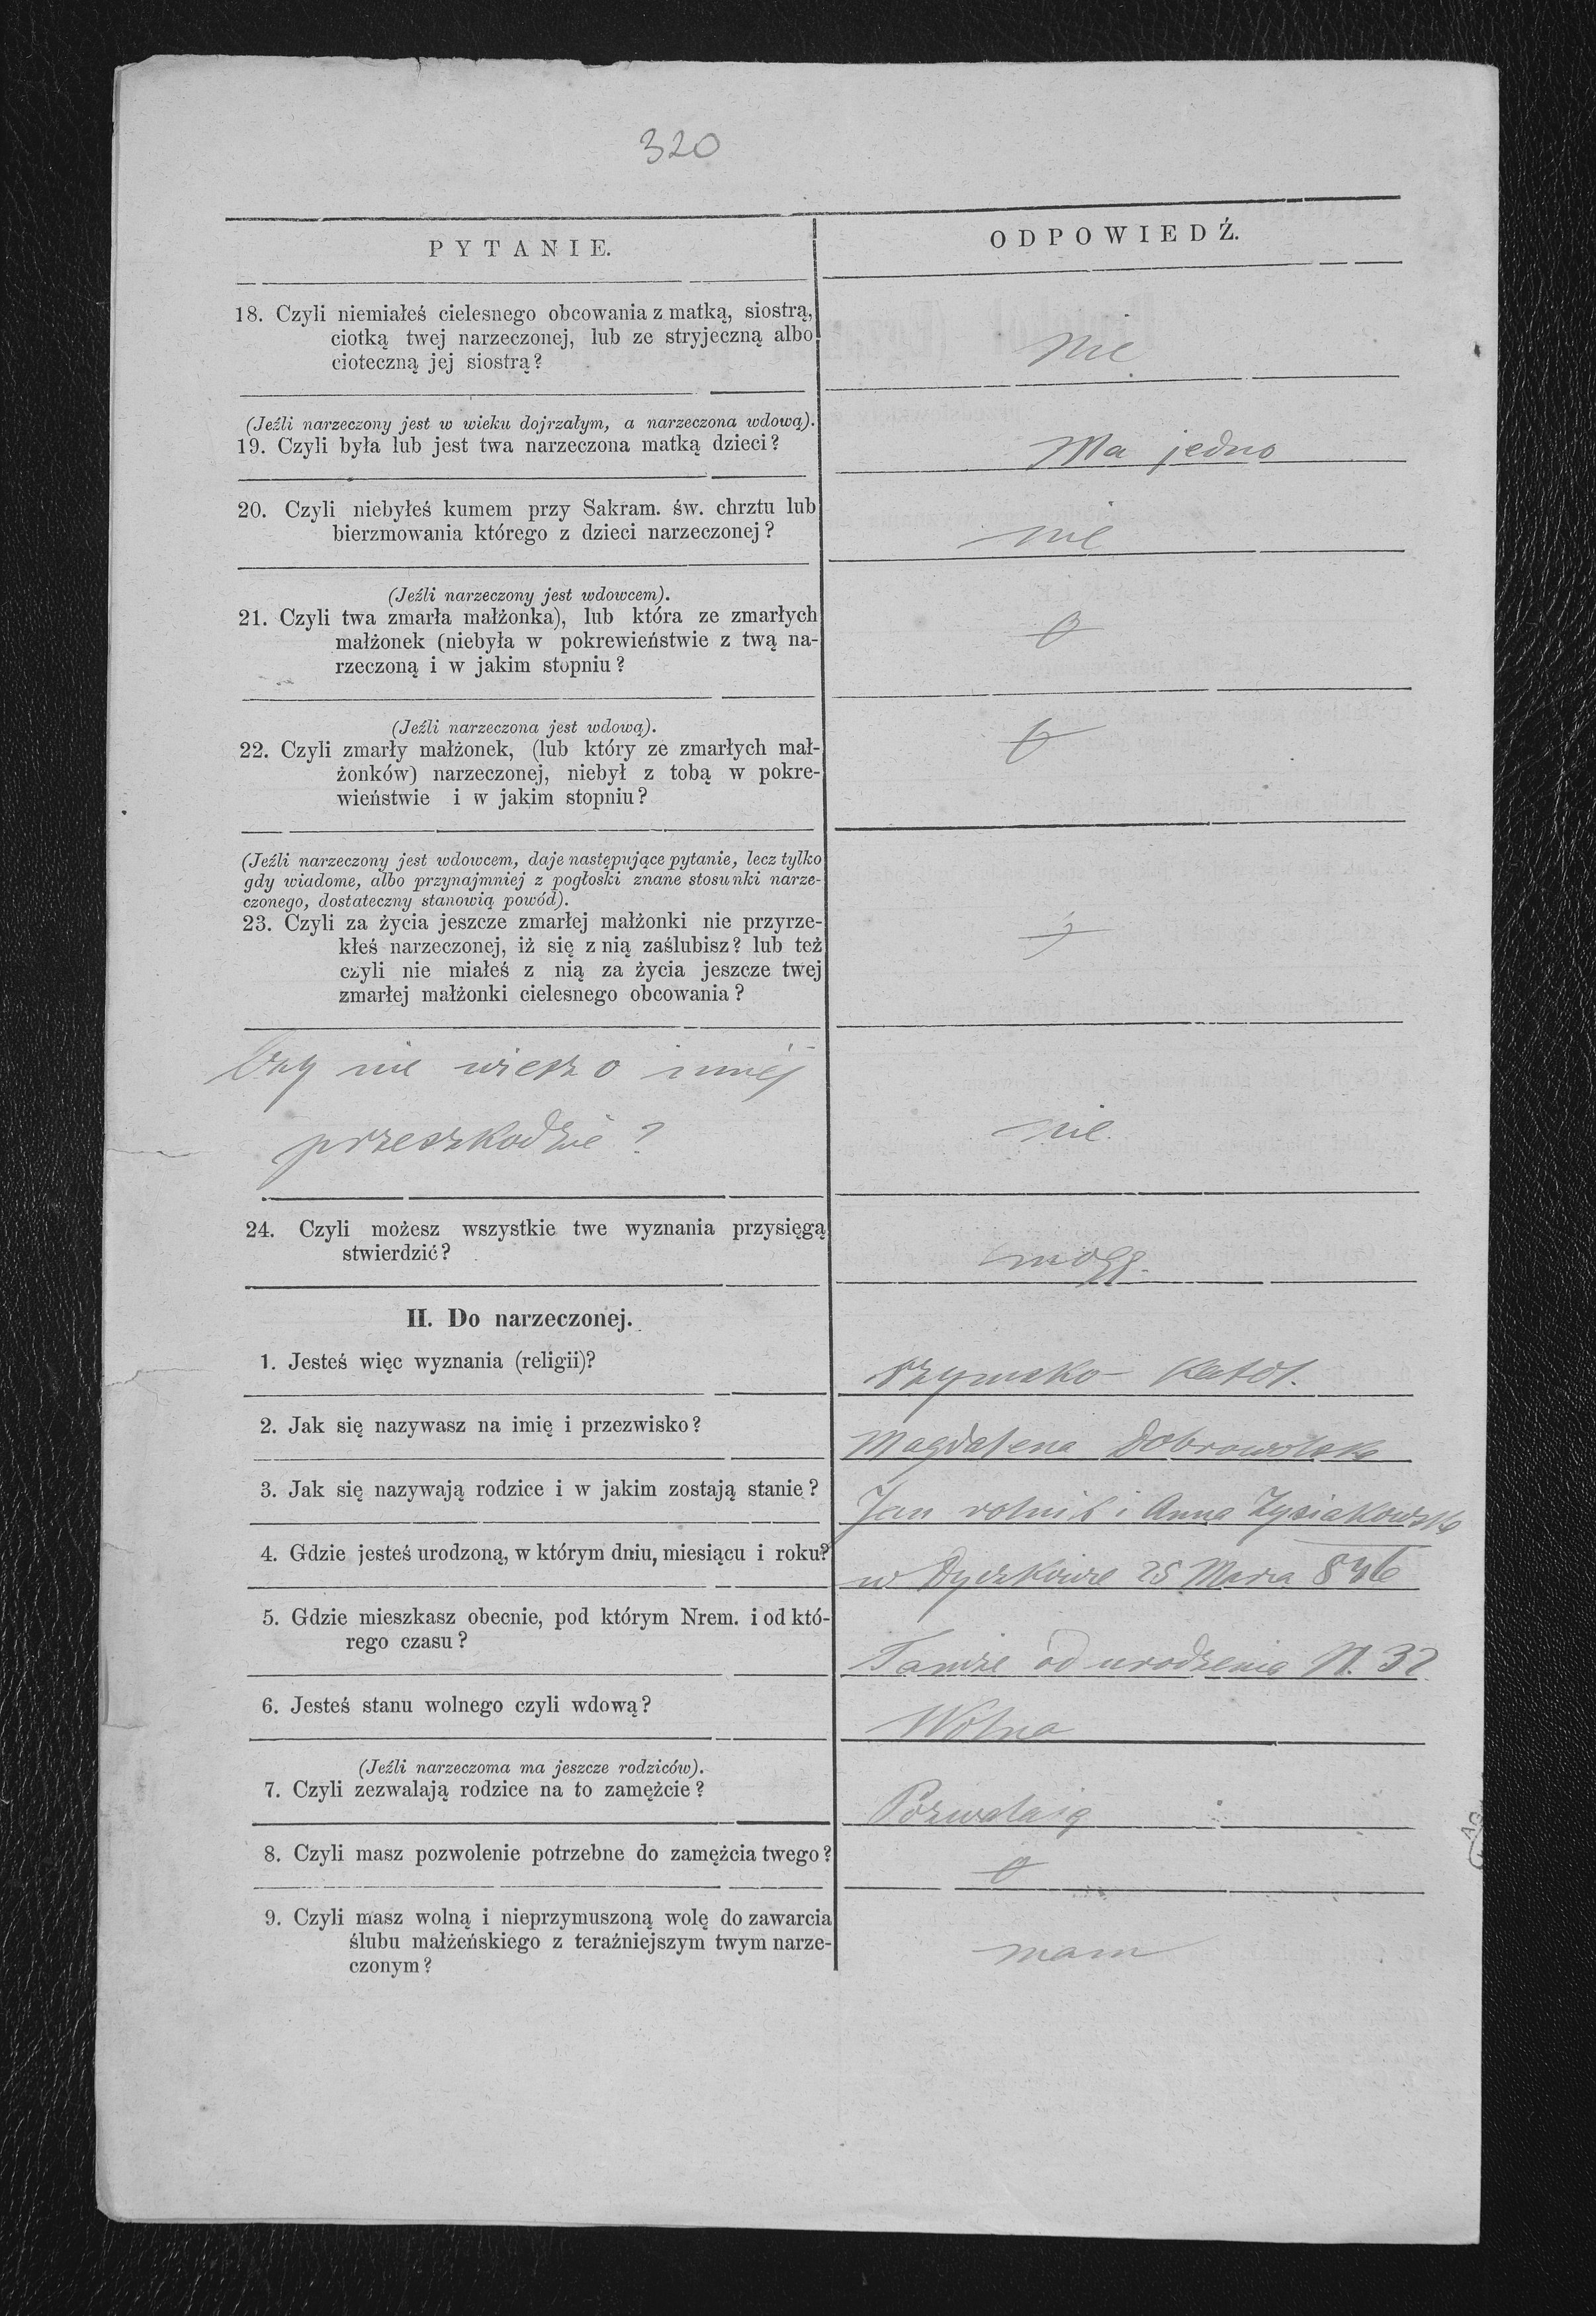 320
PYTANIE.
ODPOWIEDŹ.
18. Czyli niemiałeś cielesnego obcowania z matką, siostrą,
ciotką twej narzeczonej, lub ze stryjeczną albo
cioteczną jej siostrą?
nie
(Jeźli narzeczony jest w wieku dojrzałym, a narzeczona wdową).
19. Czyli była lub jest twa narzeczona matką dzieci?
Ma jedno
20. Czyli niebyłeś kumem przy Sakram. św. chrztu lub
bierzmowania którego z dzieci narzeczonej?
nie
(Jeźli narzeczony jest wdowcem).
21. Czyli twa zmarła małżonka), lub która ze zmarłych
małżonek (niebyła w pokrewieństwie z twą na-
rzeczoną i w jakim stopniu?
(Jeźli narzeczona jest wdową).
22. Czyli zmarły małżonek, (lub który ze zmarłych mał-
żonków) narzeczonej, niebył z tobą w pokre-
wieństwie i w jakim stopniu?
(Jeźli narzeczony jest wdowcem, daje następujące pytanie, lecz tylko
gdy wiadome, albo przynajmniej z pogłoski znane stosunki narze-
czonego, dostateczny stanowią powód).
23. Czyli za życia jeszcze zmarłej małżonki nie przyrze-
kłeś narzeczonej, iż się z nią zaślubisz? lub też
czyli nie miałeś z nią za życia jeszcze twej
zmarłej małżonki cielesnego obcowania?
Czy nie wiesz o innej
przeszkodzie?
nie.
24. Czyli możesz wszystkie twe wyznania przysięgą
stwierdzić?
mogę.
II. Do narzeczonej.
1. Jesteś więc wyznania (religii)?
rzymsko-katol.
2. Jak się nazywasz na imię i przezwisko?
Magdalena Dobrowolska
3. Jak się nazywają rodzice i w jakim zostają stanie?
Jan rolnik i Anna
4. Gdzie jesteś urodzoną, w którym dniu, miesiącu i roku?
w 25 Marca
5. Gdzie mieszkasz obecnie, pod którym Nrem. i od któ-
rego czasu?
Tamże od urodzenia N. 32
6. Jesteś stanu wolnego czyli wdową?
Wolna
(Jeźli narzeczoma ma jeszcze rodziców).
7. Czyli zezwalają rodzice na to zamężcie?
Pozwalają
8. Czyli masz pozwolenie potrzebne do zamężcia twego?
9. Czyli masz wolną i nieprzymuszoną wolę do zawarcia
ślubu małżeńskiego z teraźniejszym twym narze-
czonym?
mam